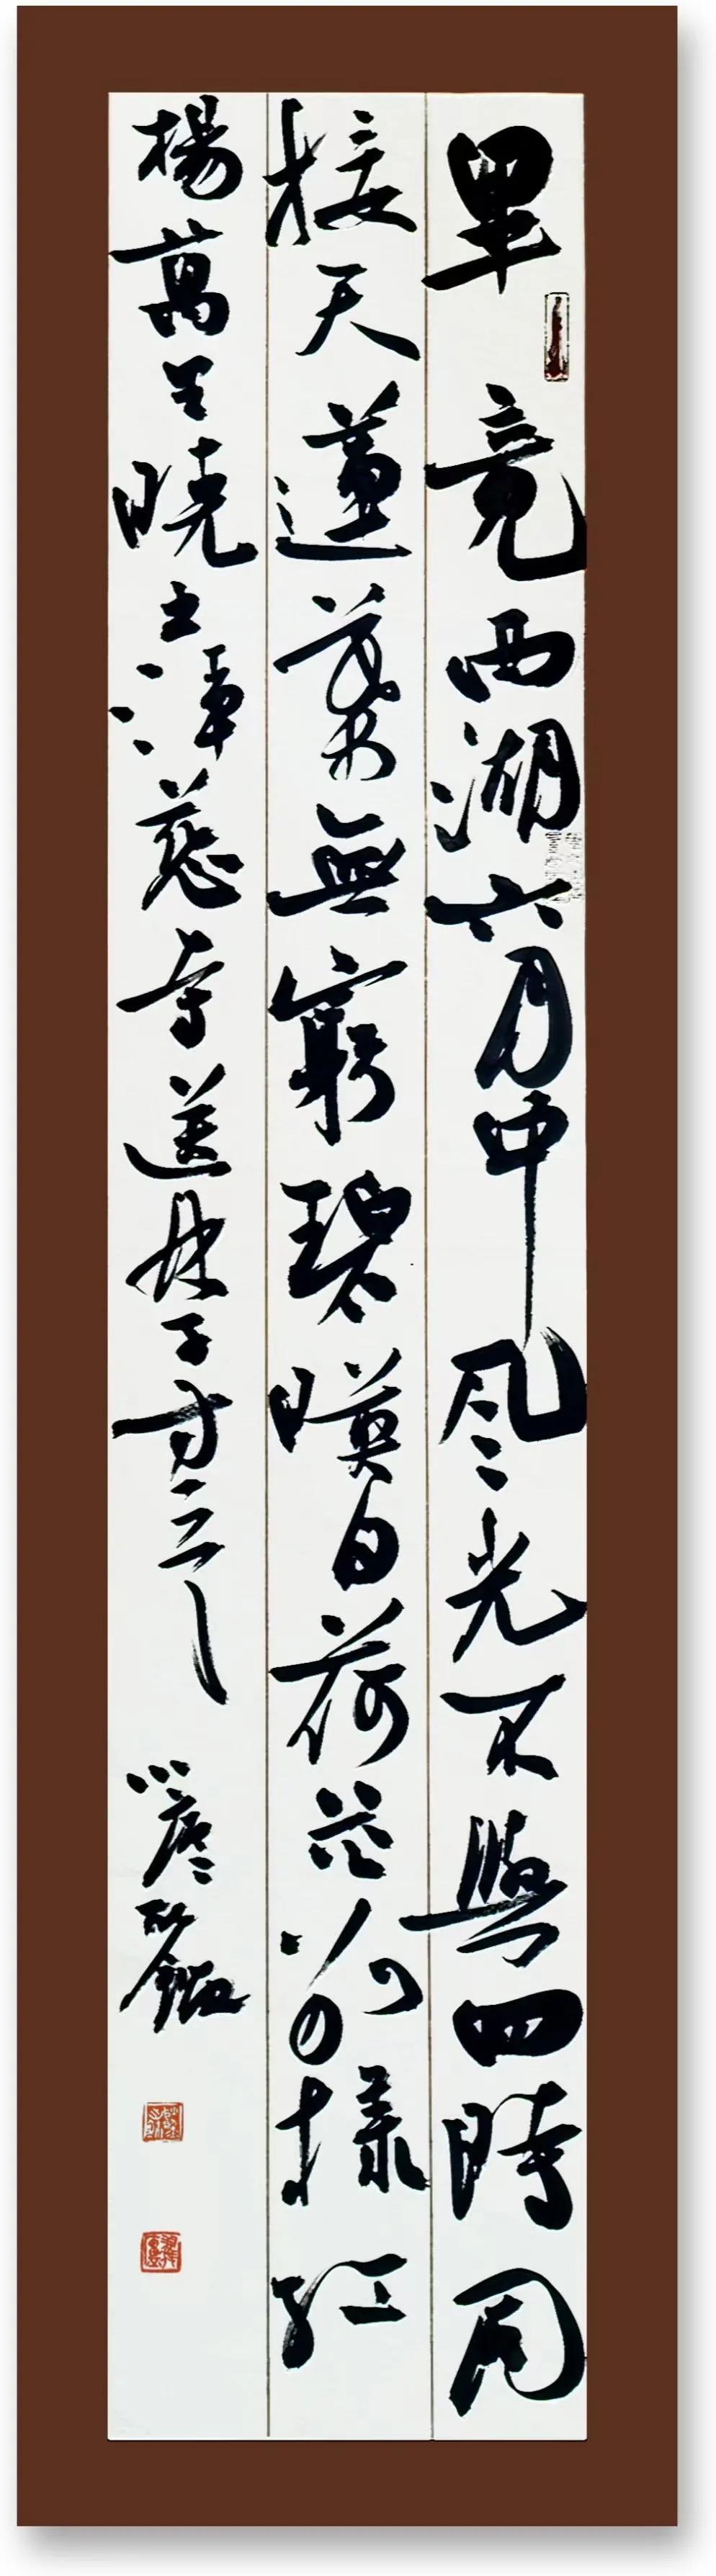 畢竟西湖六月中風光不與四時同
接天蓮葉無窮碧暎日荷花別樣紅
楊萬里曉出淨慈寺送林子方